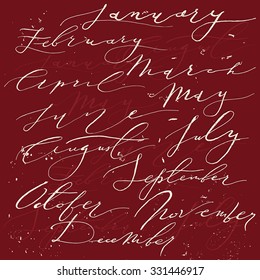 January
February
March
April
May
June
July
August
September
October
November
December
shutterstock.com · 331446917